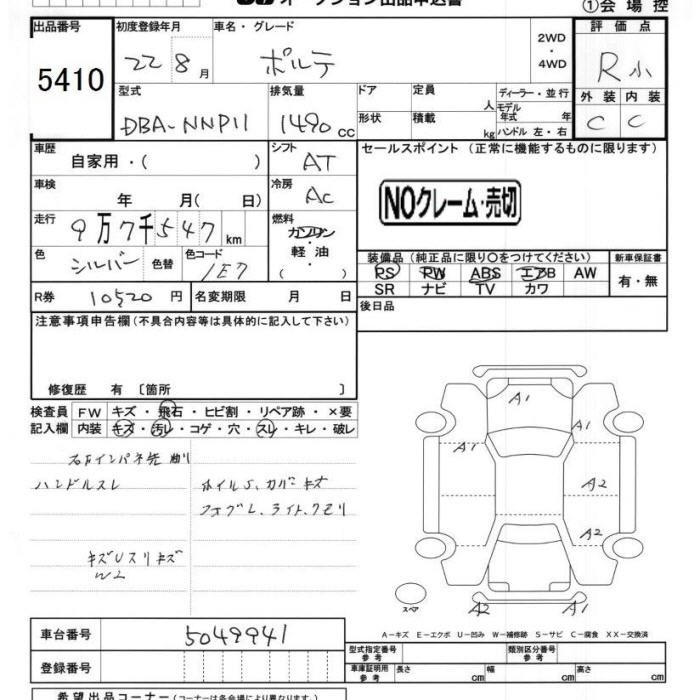 オークション出品申込書
①会場控
出品番号 初度登録年月 車名・グレード 評価点
5410 22 8月 ポルテ 2WD・4WD R小
型式 排気量 ドア 定員 人 ディーラー・並行 外装 内装
DBA-NNP11 1490cc 形状 積載 kg モデル年式 年 ハンドル 左・右 C C
車歴 自家用・( ) シフト AT セールスポイント (正常に機能するものに限ります)
車検 年 月( 日) 冷房 AC NOクレーム・売切
走行 9万7千547km 燃料 ガソリン
色 シルバー 色替 色コード 1E7 軽油・( )
装備品 (純正品に限り○をつけてください) 新車保証書
PS PW ABS エアB AW 有・無
SR ナビ TV カワ
R券 10520円 名変期限 月 日 後日品
注意事項申告欄(不具合内容等は具体的に記入して下さい)
修復歴 有〔箇所 〕
検査員 FW キズ・飛石・ヒビ割・リペア跡・×要
記入欄 内装 キズ・汚レ・コゲ・穴・スレ・キレ・破レ
ハンドルスレ
A1
A1 A1
A2
A2
スペア A2 A1
A-キズ E-エクボ U-凹み W-補修跡 S-サビ C-腐食 XX-交換済
車台番号 5049941
登録番号
型式指定番号 参考 類別区分番号 参考
車庫証明用 参考 長さ cm 幅 cm 高さ cm
希望出品コーナー (コーナーは各会場により異なります。)